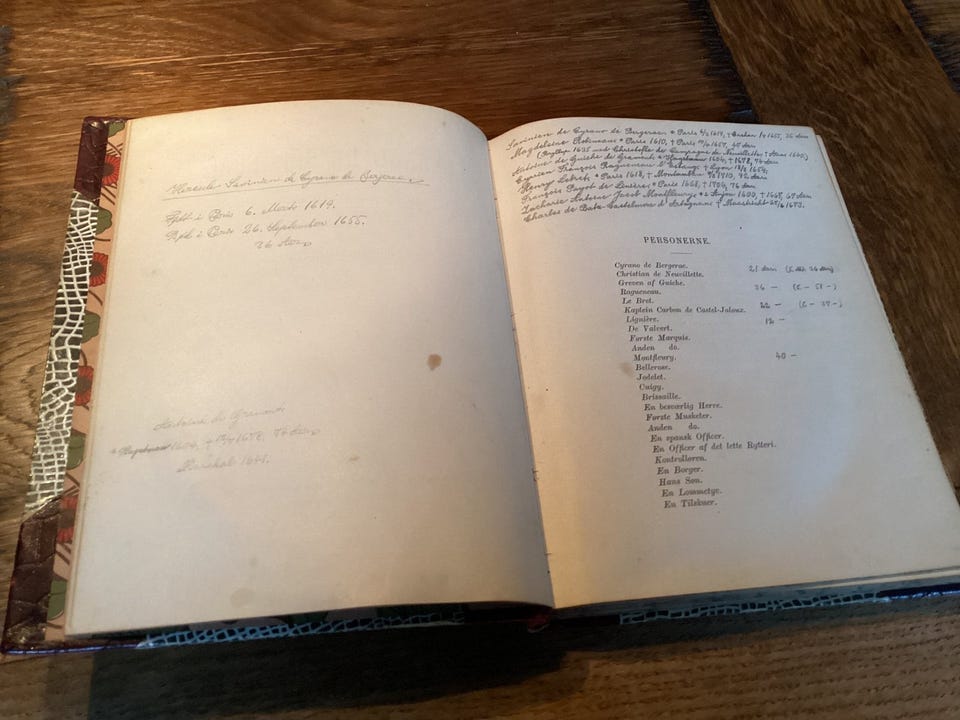 Hercule Savinien de Cyrano de Bergerac
Født i Paris 6. Marts 1619.
Død i Paris 26. September 1655.
36 Aar
Antoine de Gramont
1604, † 1678, 74 Aar
Marschal 1641.
Savinien de Cyrano de Bergerac * Paris 1619, † 1655, 36 Aar
Magdeleine Robineau * Paris 1610, † Paris 1657, 47 Aar
1635 med Christofle de Champagne de Neuvillette, †
Antoine de Guiche de Gramont * 1604, † 1678, 74 Aar
Cyprien François Ragueneau * † Lyon 1654,
Henry Lebret, * Paris 1618, † Montauban 1710, 92 Aar
François Payot de Lignière, * Paris 1628, † 1704, 76 Aar
Zacharie Antoine Jacob Montfleury * Anjou 1600, † 1667, 67 Aar
Charles de Batz Castelmore d'Artagnan † Maastricht 1673.
PERSONERNE.
Cyrano de Bergerac. 21 Aar (36 Aar)
Christian de Neuvillette.
Greven af Guiche. 36 — (— 51 —)
Ragueneau.
Le Bret. 22 — (— 37 —)
Kaptein Carbon de Castel-Jaloux.
Lignière. 12 —
De Valvert.
Første Marquis.
Anden do.
Montfleury. 40 —
Bellerose.
Jodelet.
Cuigy.
Brissaille.
En besværlig Herre.
Første Musketer.
Anden do.
En spansk Officer.
En Officer af det lette Rytteri.
Kontrolløren.
En Borger.
Hans Søn.
En Lommetyv.
En Tilskuer.